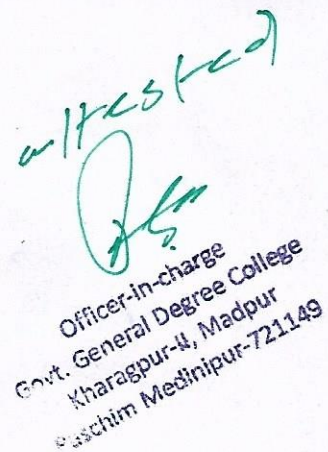 attested
Officer-in-charge
Govt. General Degree College
Kharagpur-II, Madpur
Paschim Medinipur-721149